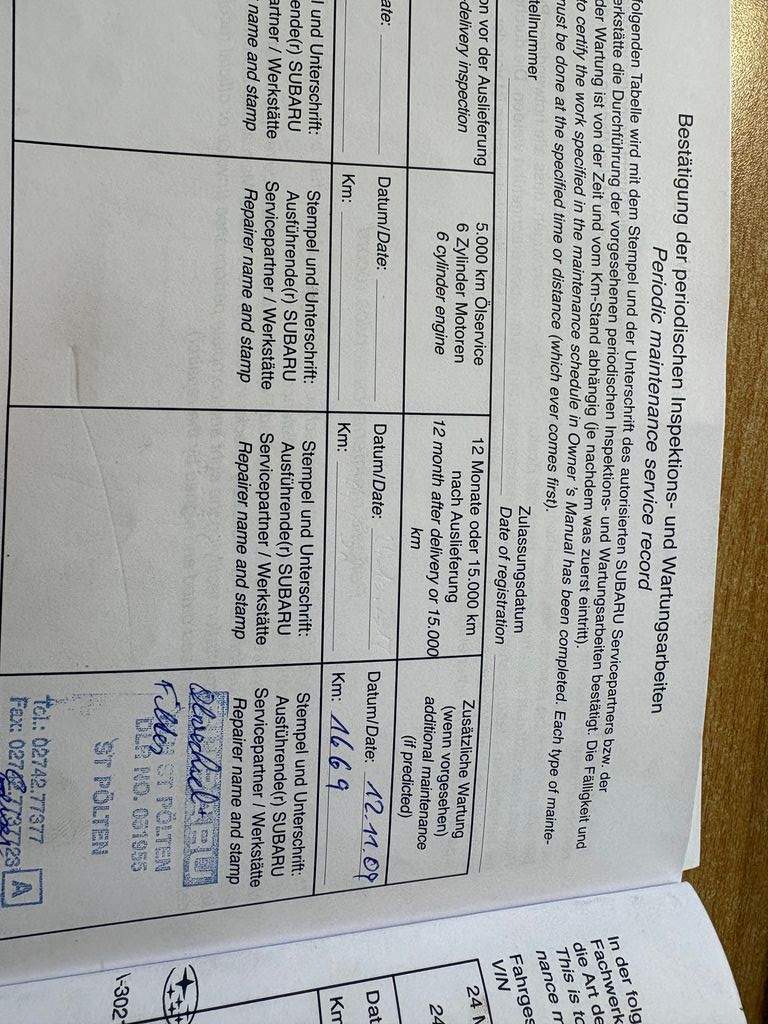 Bestätigung der periodischen Inspektions- und Wartungsarbeiten
Periodic maintenance service record
folgenden Tabelle wird mit dem Stempel und der Unterschrift des autorisierten SUBARU Servicepartners bzw. der
erkstätte die Durchführung der vorgesehenen periodischen Inspektions- und Wartungsarbeiten bestätigt. Die Fälligkeit und
der Wartung ist von der Zeit und vom Km-Stand abhängig (je nachdem was zuerst eintritt).
to certify the work specified in the maintenance schedule in Owner's Manual has been completed. Each type of mainte-
must be done at the specified time or distance (which ever comes first).
tellnummer
Zulassungsdatum
Date of registration
on vor der Auslieferung
delivery inspection
ate:
l und Unterschrift:
ende(r) SUBARU
artner / Werkstätte
name and stamp
5.000 km Ölservice
6 Zylinder Motoren
6 cylinder engine
Datum/Date:
Km:
Stempel und Unterschrift:
Ausführende(r) SUBARU
Servicepartner / Werkstätte
Repairer name and stamp
12 Monate oder 15.000 km
nach Auslieferung
12 month after delivery or 15.000
km
Datum/Date:
Km:
Stempel und Unterschrift:
Ausführende(r) SUBARU
Servicepartner / Werkstätte
Repairer name and stamp
Zusätzliche Wartung
(wenn vorgesehen)
additional maintenance
(if predicted)
Datum/Date: 12.11.09
Km: 1669
Stempel und Unterschrift:
Ausführende(r) SUBARU
Servicepartner / Werkstätte
Repairer name and stamp
Ölwechsel +
Filter
ST PÖLTEN
DLR NO. 051955
ST PÖLTEN
tel.: 02742.77377
Fax: 02742.7737723
A
In der folg
Fachwerk
die Art de
This is to
nance m
Fahrges
VIN
24 M
24
Dat
Km